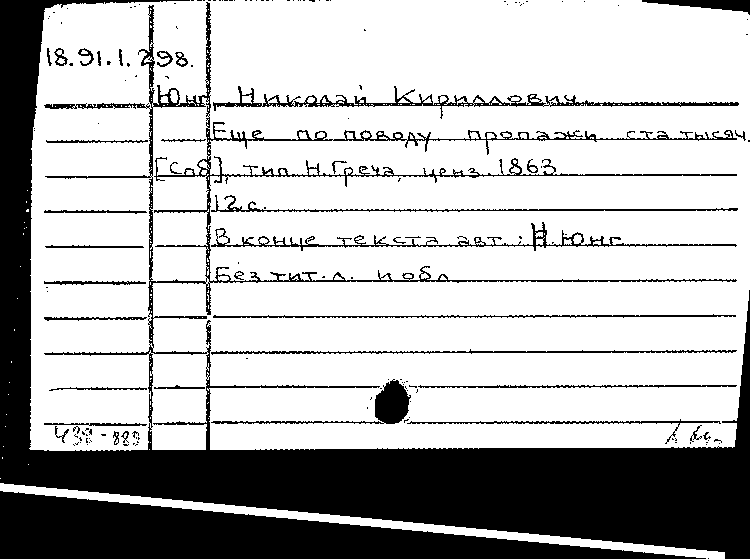 18.91.1.298.
Юнг, Николай Кириллович
Еще по поводу пропажи ста тысяч.
[Спб], тип. Н. Греча, ценз. 1863.
12 с.
В конце текста авт.: Н. Юнг
Без тит. л. и обл.
438-889